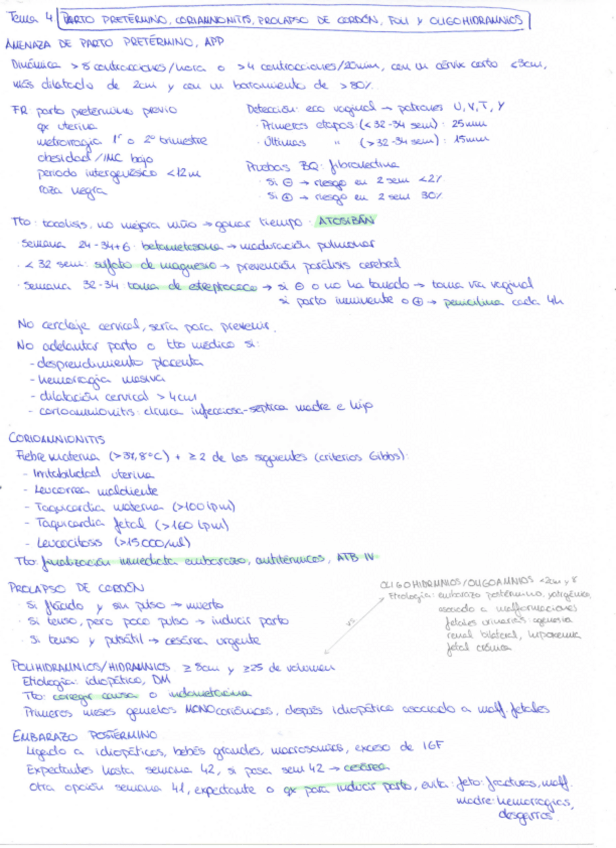 Tema 4 PARTO PRETÉRMINO, CORIAMNIONITIS, PROLAPSO DE CORDÓN, POLI Y OLIGOHIDRAMNIOS
AMENAZA DE PARTO PRETÉRMINO, APP
Dinámica >8 contracciones/hora o >4 contracciones/20min, con un cérvix corto <3cm,
más dilatado de 2cm y con un borramiento de >80%
FR parto pretérmino previo
qx uterina
metrorragia 1º o 2º trimestre
obesidad/IMC bajo
periodo intergenésico <12m
raza negra
Detección: eco vaginal → patrones U, V, T, Y
· Primeras etapas (<32-34 sem): 25mm
· Últimas " (>32-34 sem): 15mm
Pruebas BQ: fibronectina
· si ⊖ → riesgo en 2 sem <2%
· si ⊕ → riesgo en 2 sem 30%
Tto: tocolisis, no mejora niño → ganar tiempo: ATOSIBÁN
· Semana 24-34+6: betametasona → maduración pulmonar
· <32 sem: sulfato de magnesio → prevención parálisis cerebral
· Semana 32-34: toma de estreptococo → si ⊖ o no ha tomado → toma vía vaginal
si parto inminente o ⊕ → penicilina cada 4h
No cerclaje cervical, sería para prevenir.
No adelantar parto o tto médico si:
- desprendimiento placenta
- hemorragia masiva
- dilatación cervical >4cm
- corioamnionitis: clínica infecciosa-séptica madre e hijo
CORIOAMNIONITIS
Fiebre materna (>37,8ºC) + ≥2 de los siguientes (criterios Gibbs):
- Irritabilidad uterina
- Leucorrea maloliente
- Taquicardia materna (>100 lpm)
- Taquicardia fetal (>160 lpm)
- Leucocitosis (>15000/ml)
Tto: finalización inmediata embarazo, antitérmicos, ATB IV
PROLAPSO DE CORDÓN
· Si flácido y sin pulso → muerto
· Si tenso, pero poco pulso → inducir parto
· Si tenso y pulsátil → cesárea urgente
OLIGOHIDRAMNIOS/OLIGOAMNIOS <2cm y
Etiología: embarazo postérmino, yatrogénico,
asociado a malformaciones
fetales urinarias: agenesia
renal bilateral, hipoxemia
fetal crónica
vs
POLIHIDRAMNIOS/HIDRAMNIOS ≥8cm y ≥25 de volumen
Etiología: idiopático, DM
Tto: corregir causa o indometacina
Primeros meses gemelos MONOcoriónicos, después idiopático asociado a malf. fetales
EMBARAZO POSTÉRMINO
Ligado a idiopáticos, bebés grandes, macrosomías, exceso de IGF
Expectantes hasta semana 42, si pasa sem 42 → cesárea
Otra opción semana 41, expectante o qx para inducir parto, evita: feto: fracturas, malf.
madre: hemorragias,
desgarros